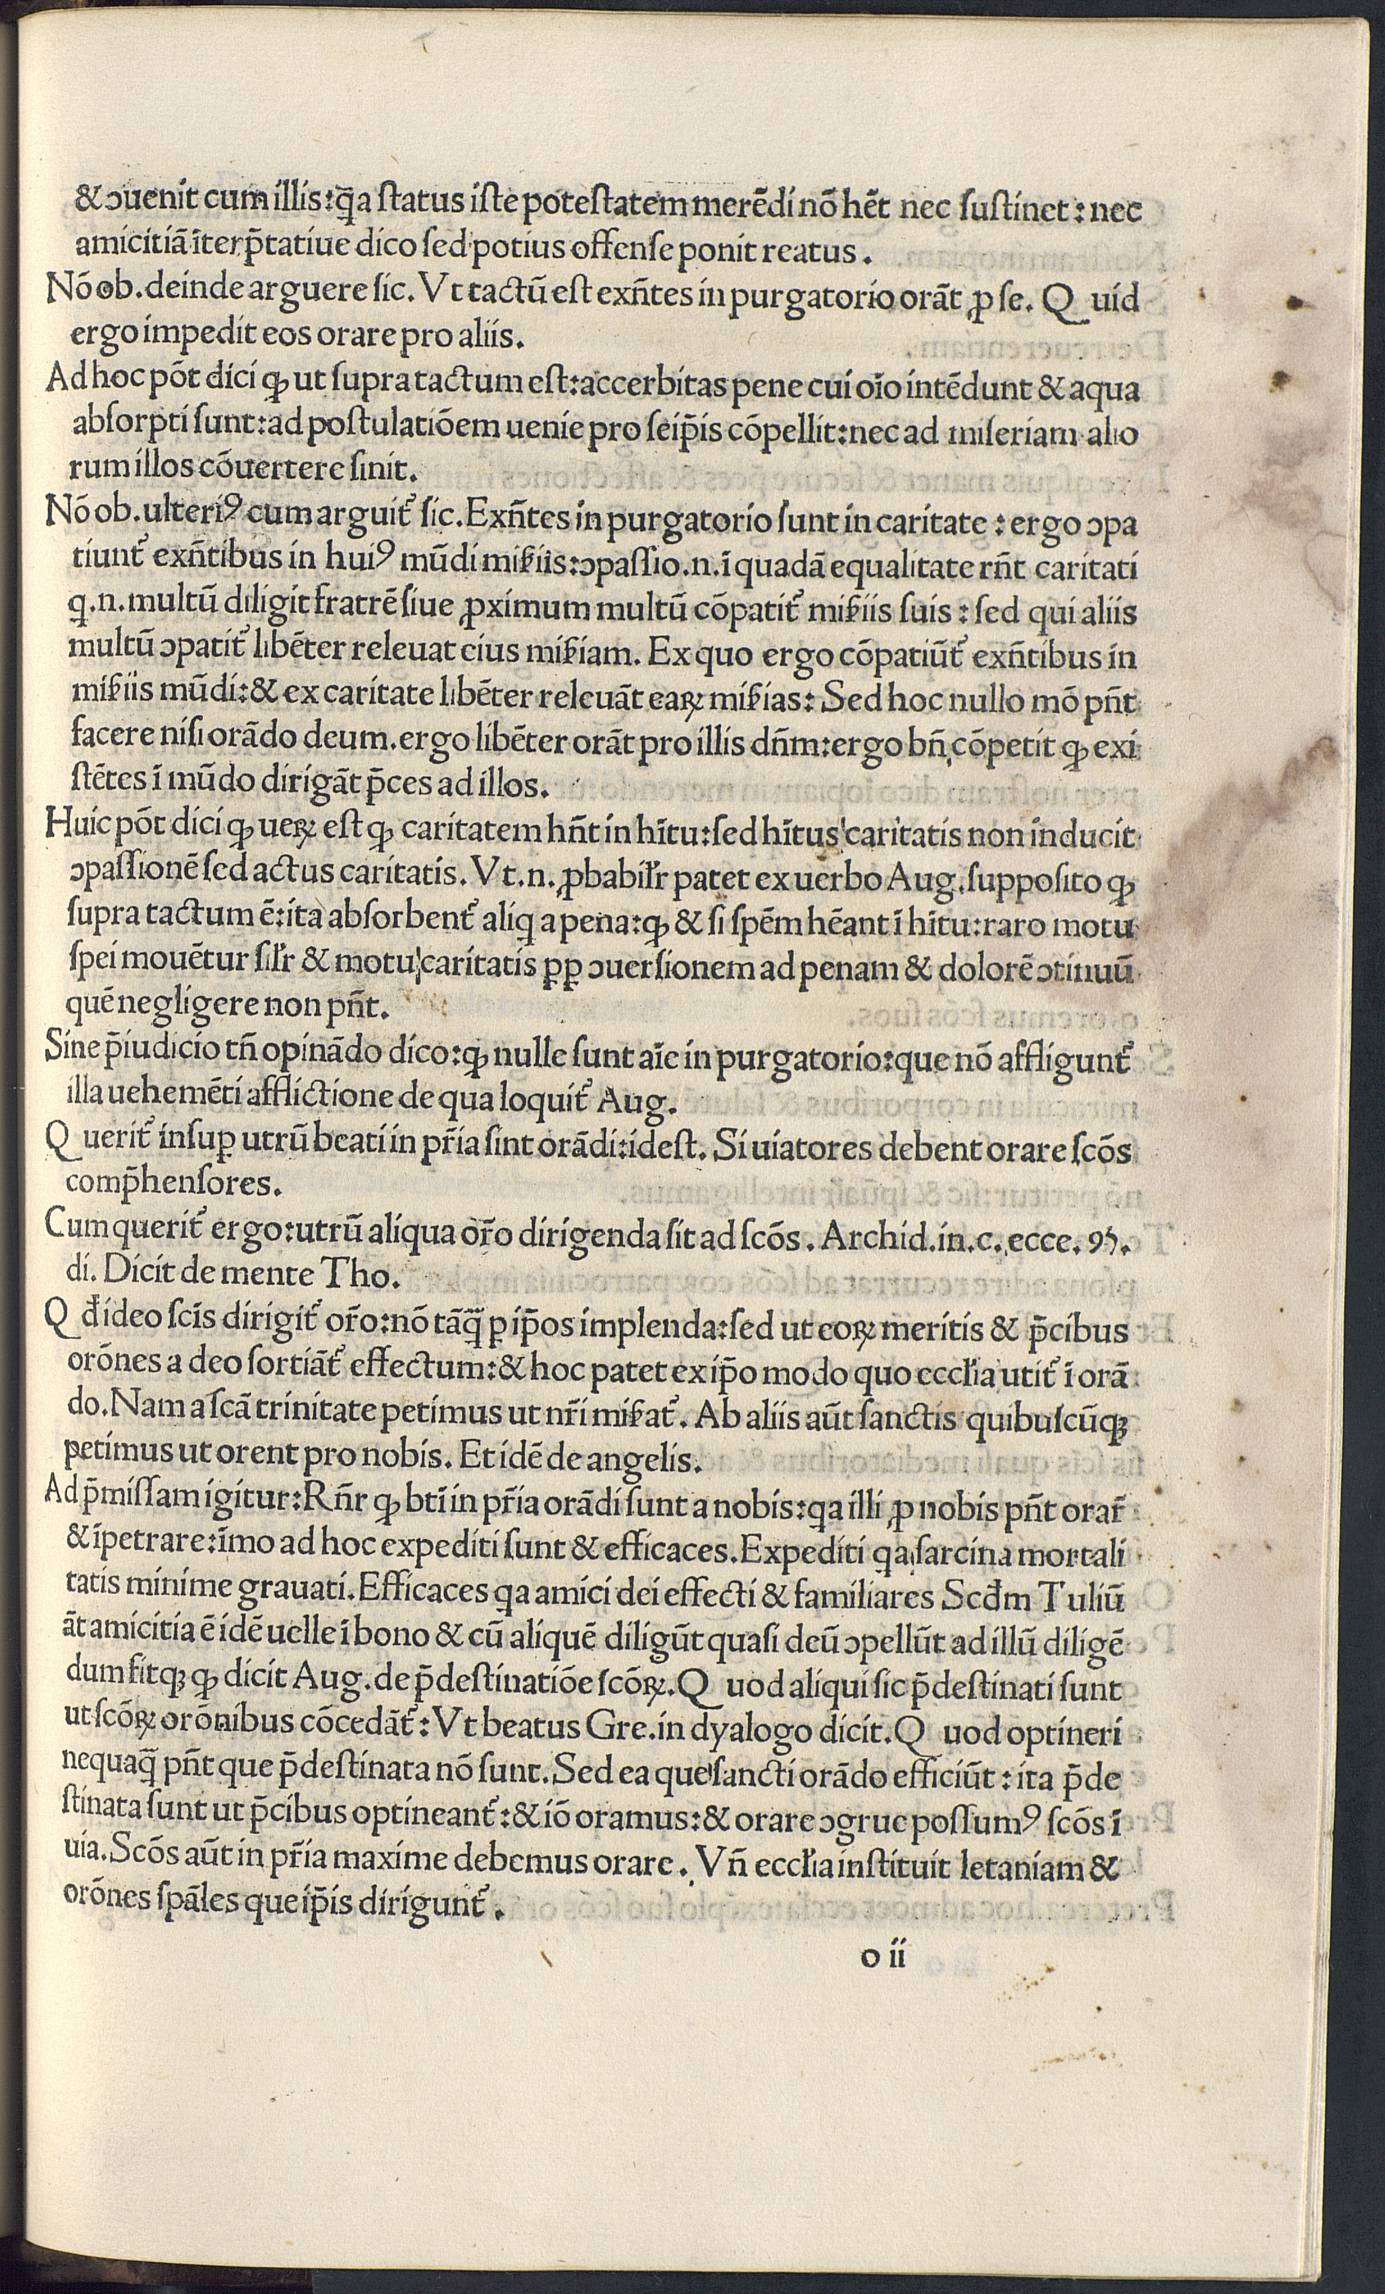 & ↄuenit cum illis:q̄a ſtatus iſte poteſtatem merēdi nō hēt nec ſuſtinet : nec
amicitiā īterp̄tatiue dico ſed potius offenſe ponit reatus .
Nō ob. deinde arguere ſic. Vt tactū eſt exn̄tes in purgatorio orāt ꝓ ſe. Q uid
ergo impedit eos orare pro aliis.
Ad hoc pōt dici ꝙ ut ſupra tactum eſt:accerbitas pene cui oīo intēdunt & aqua
abſorpti ſunt:ad poſtulatiōem uenie pro ſeip̄is cōpellit:nec ad miſeriam alio
rum illos cōuertere ſinit.
Nō ob. ulteriꝰ cum arguit᷑ ſic. Exn̄tes in purgatorio ſunt in caritate : ergo ↄpa
tiunt᷑ exn̄tibus in huiꝰ mūdi mīiis:ↄpaſſio.n.ī quadā equalitate rn̄t caritati
q.n.multū diligit fratrē ſiue ꝓximum multū cōpatit᷑ mīiis ſuis : ſed qui aliis
multū ↄpatit᷑ libēter releuat eius mīiam. Ex quo ergo cōpatiūt᷑ exn̄tibus in
mīiis mūdi:& ex caritate libēter releuāt eaꝝ mīias: Sed hoc nullo mō pn̄t
facere niſi orādo deum. ergo libēter orāt pro illis dn̄m:ergo bn̄ cōpetit ꝙ exi
ſtētes ī mūdo dirigāt p̄ces ad illos.
Huic pōt dici ꝙ ueꝝ eſt ꝙ caritatem hn̄t in hītu:ſed hītus caritatis non inducit
ↄpaſſionē ſed actus caritatis. Vt.n. ꝓbabiłr patet ex uerbo Aug. ſuppoſito ꝙ
ſupra tactum ē:ita abſorbent᷑ aliq a pena:ꝙ & ſi ſpēm hēant ī hītu:raro motu
ſpei mouētur ſiłr & motu caritatis ꝑꝑ ↄuerſionem ad penam & dolorē ↄtinuū
quē negligere non pn̄t.
Sine p̄iudicio tn̄ opinādo dico:ꝙ nulle ſunt aīe in purgatorio:que nō affligunt᷑
illa uehemēti afflictione de qua loquit᷑ Aug.
Q uerit᷑ inſuꝑ utrū beati in pr̄ia ſint orādi:ideſt. Si uiatores debent orare ſcōs
comp̄henſores.
Cum querit᷑ ergo:utrū aliqua or̄o dirigenda ſit ad ſcōs. Archid.in.c. ecce. 95.
di. Dicit de mente Tho.
Q đ ideo ſcīs dirigit᷑ or̄o:nō tāq̄ꝫ ꝑ ip̄os implenda:ſed ut eoꝝ meritis & p̄cibus
orōnes a deo ſortiāt᷑ effectum:& hoc patet ex ip̄o modo quo eccłia utit᷑ ī orā
do. Nam a ſcā trinitate petimus ut nr̄i mīeat᷑. Ab aliis aūt ſanctis quibuſcūqꝫ
petimus ut orent pro nobis. Et idē de angelis.
Ad p̄miſſam igitur:Rn̄r ꝙ btī in pr̄ia orādi ſunt a nobis:qa illi ꝓ nobis pn̄t orar̄
& īpetrare:īmo ad hoc expediti ſunt & efficaces. Expediti qa ſarcina mortali
tatis minime grauati. Efficaces qa amici dei effecti & familiares Scđm Tuliū
āt amicitia ē idē uelle ī bono & cū aliquē diligūt quaſi deū ↄpellūt ad illū diligē
dum fitqꝫ ꝙ dicit Aug. de p̄deſtinatiōe ſcōꝝ. Q uod aliqui ſic p̄deſtinati ſunt
ut ſcōꝝ orōnibus cōcedāt᷑ : Vt beatus Gre. in dyalogo dicit. Q uod optineri
nequaq̄ pn̄t que p̄deſtinata nō ſunt. Sed ea que ſancti orādo efficiūt : ita p̄de
ſtinata ſunt ut p̄cibus optineant᷑ :& iō oramus:& orare ↄgrue poſſumꝰ ſcōs ī
uia. Scōs aūt in pr̄ia maxime debemus orare . Vn̄ eccłia inſtituit letaniam &
orōnes ſpāles que ip̄is dirigunt᷑ .
o ii